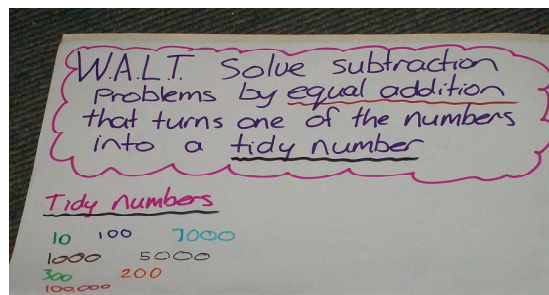 W.A.L.T. Solve subtraction
problems by equal addition
that turns one of the numbers
into a tidy number
Tidy numbers
10 100 7000
1000 5000
300 200
100,000